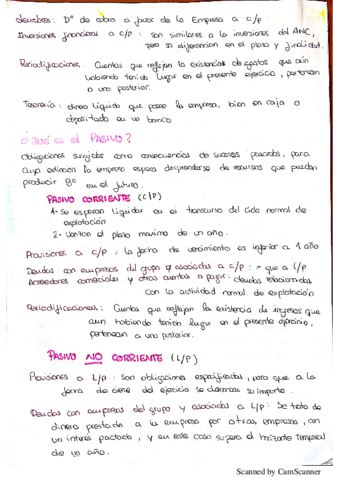 deudores: Dº de cobro a favor de la Empresa a c/p
Inversiones financieras a c/p: son similares a la inversiones del ANC,
pero se diferencian en el plazo y finalidad.
Periodificaciones: Cuentas que reflejan la existencia de gastos que aún
habiendo tenido lugar en el presente ejercicio, pertenecen
a uno posterior.
Tesorería: dinero líquido que posee la empresa, bien en caja o
depositado en un banco
¿Qué es el PASIVO?
Obligaciones surgidas como consecuencias de sucesos pasados, para
cuya extinción la empresa espera desprenderse de recursos que puedan
producir Bº en el futuro.
PASIVO CORRIENTE (C/P)
1- Se esperan liquidar en el transcurso del ciclo normal de
explotación
2- Vencen el plazo máximo de un año.
Provisiones a c/p: la fecha de vencimiento es inferior a 1 año
Deudas con empresas del grupo y asociadas a c/p: = que a L/p
Acreedores comerciales y otras cuentas a pagar: deudas relacionadas
con la actividad normal de explotación
Periodificaciones: Cuentas que reflejan la existencia de ingresos que
aun habiendo tenido lugar en el presente ejercicio,
pertenecen a uno posterior.
PASIVO NO CORRIENTE (L/P)
Provisiones a L/p: Son obligaciones especificadas, pero que a la
fecha de cierre del ejercicio se su importe.
Deudas con empresas del grupo y asociadas a L/p: Se trata de
dinero prestado a la empresa por otras empresas, con
un interés pactado, y en este caso supera el horizonte temporal
de un año.
Scanned by CamScanner